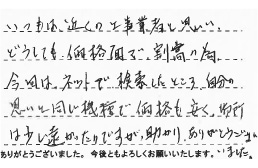 いつもは、近くの〻事業者と思い、
どうしても、価格面で、割高の為
今回は、ネットで検索したところ自分の
思いと同じ機種で価格も安く、場所
は少し遠かったりですが、助かり、ありがとうござい
ました。
ありがとうございました。今後ともよろしくお願いいたします。